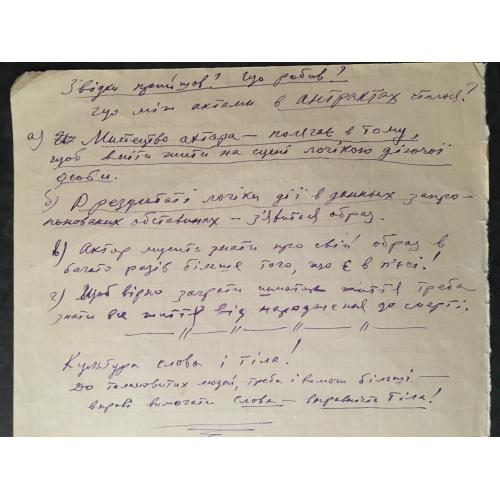 Звідки прийшов? Що робив?
Що між актами в антрактах сталося?
а) Мистецтво актора — полягає в тому,
щоб вміти жити на сцені логікою діючої
особи.
б) В результаті логіки дії в данных запро-
понованих обставинах — з'явиться образ.
в) Актор мусить знати про свій образ в
багато разів більше того, що є в п'єсі!
г) Щоб вірно заграти шматок життя треба
знати все життя від народження до смерті.
— // — // — // — // —
Культура слова і тіла!
До талановитих людей, треба і вимоги більші —
вправі вимагати слова — виразність тіла!